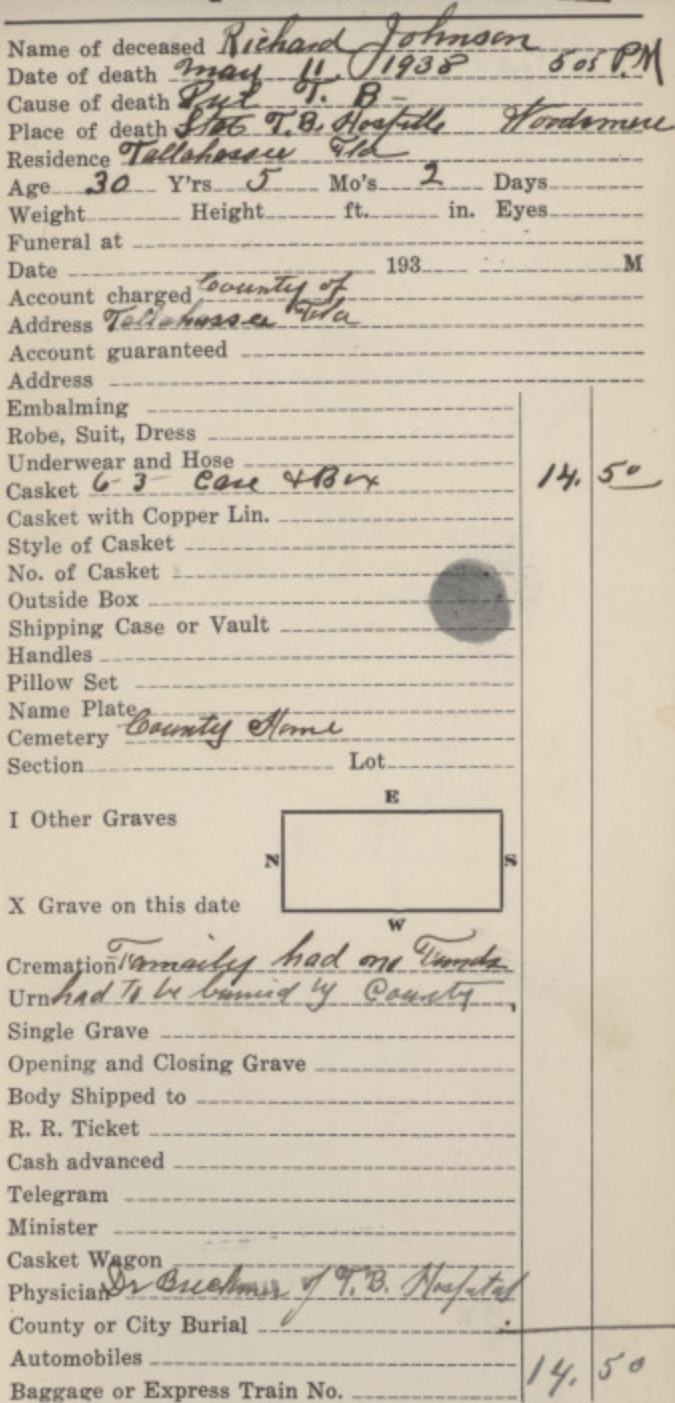 Name of deceased Richard Johnson
Date of death may 11 1938 505 P.M
Cause of death Pul T. B-
Place of death Stat T.B. Hospitle Woodsmere
Residence Tallahassee Fla
Age 30 Y'rs 5 Mo's 2 Days
Weight Height ft. in. Eyes
Funeral at
Date 193 M
Account charged County of
Address Tallahassee Fla
Account guaranteed
Address
Embalming
Robe, Suit, Dress
Underwear and Hose
Casket 6-3 Case & Box 14. 50
Casket with Copper Lin.
Style of Casket
No. of Casket
Outside Box
Shipping Case or Vault
Handles
Pillow Set
Name Plate
Cemetery County Home
Section Lot
E
I Other Graves
N S
X Grave on this date
W
Cremation Famaily had no Funds
Urn had to be burried by County
Single Grave
Opening and Closing Grave
Body Shipped to
R. R. Ticket
Cash advanced
Telegram
Minister
Casket Wagon
Physician Dr of T.B. Hospital
County or City Burial
Automobiles 14. 50
Baggage or Express Train No.